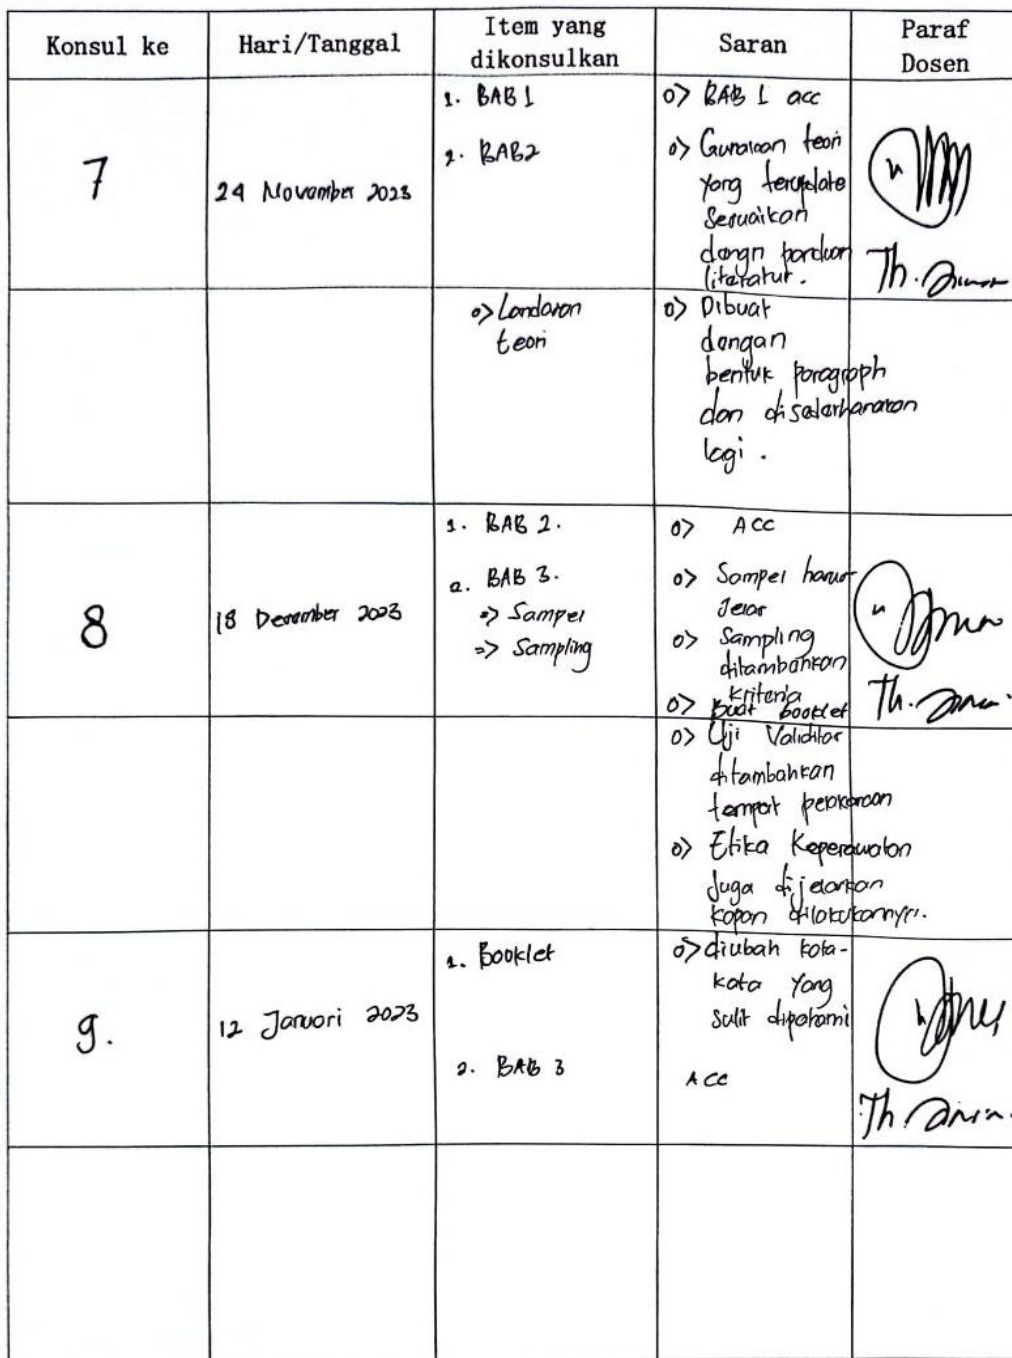 Konsul ke Hari/Tanggal Item yang dikonsulkan Saran Paraf Dosen
7
24 November 2023
1. BAB 1
2. BAB 2
o> BAB 1 acc
o> Gunakan teori
yang terupdate
Sesuaikan
dengn panduan
literatur.
o> Landasan
teori
o> Dibuat
dengan
bentuk paragraph
dan disederhanakan
lagi.
8
18 Desember 2023
1. BAB 2.
2. BAB 3.
=> Sampel
=> Sampling
o> ACC
o> Sampel harus
Jelas
o> Sampling
ditambahkan
kriteria
o> Buat booklet
o> Uji Validitas
ditambahkan
tempat
o> Etika Keperawatan
Juga dijelaskan
kapan dilakukannya.
9.
12 Januari 2023
1. Booklet
2. BAB 3
o> diubah kata-
kata yang
sulit dipahami
ACC